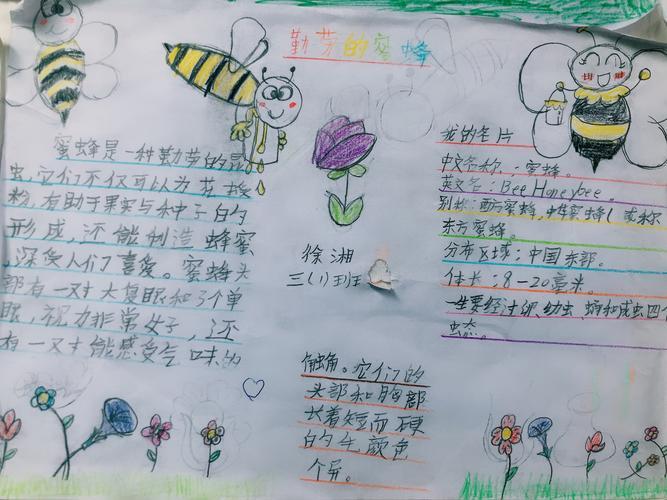 勤劳的蜜蜂
蜜蜂是一种勤劳的昆
虫,它们不仅可以为花授
粉,有助于果实与种子的
形成,还能制造蜂蜜
,深受人们喜爱。蜜蜂头
部有一对大复眼和3个单
眼,视力非常好,还
有一对能感受气味的
徐湘
三(1)班
触角。它们的
头部和胸部
长着短而硬
的毛颜色
个异。
我的名片
中文名称:蜜蜂。
英文名:Bee Honeybee.
别称:西方蜜蜂,中华蜜蜂(或称
东方蜜蜂。
分布区域:中国东部。
体长:8-20毫米。
一生要经过卵、幼虫、蛹和成虫四个
虫态。